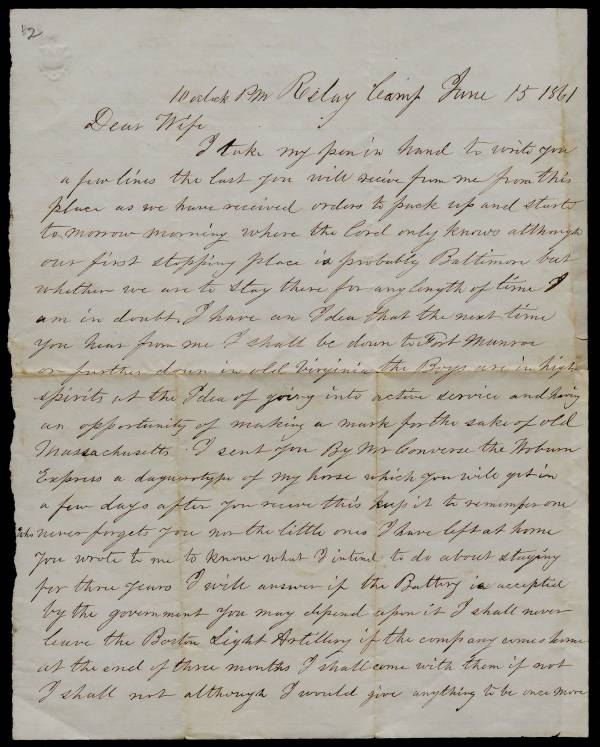 12
10 oclock PM Relay Camp June 15 1861
Dear Wife
I take my pen in hand to write you
a few lines the last you will receive from me from this
place as we have received orders to pack up and start
to morrow morning where the Lord only knows although
our first stopping place is probably Baltimore but
whether we are to stay there for any length of time I
am in doubt. I have an Idea that the next time
you hear from me I shall be down to Fort Munroe
or further down in old Virginia the Boys are in high
spirits at the Idea of going into active service and having
an opportunity of making a mark for the sake of old
Massachusetts I sent you By Mr Converse the Woburn
Express a daguerotype of my horse which you will get in
a few days after you receive this keep it to remember one
who never forgets you nor the little ones I have left at home
You wrote to me to know what I intend to do about staying
for three years I will answer if the Battery is accepted
by the government you may depend upon it I shall never
leave the Boston Light Artillery if the company comes home
at the end of three months I shall come with them if not
I shall not although I would give anything to be once more